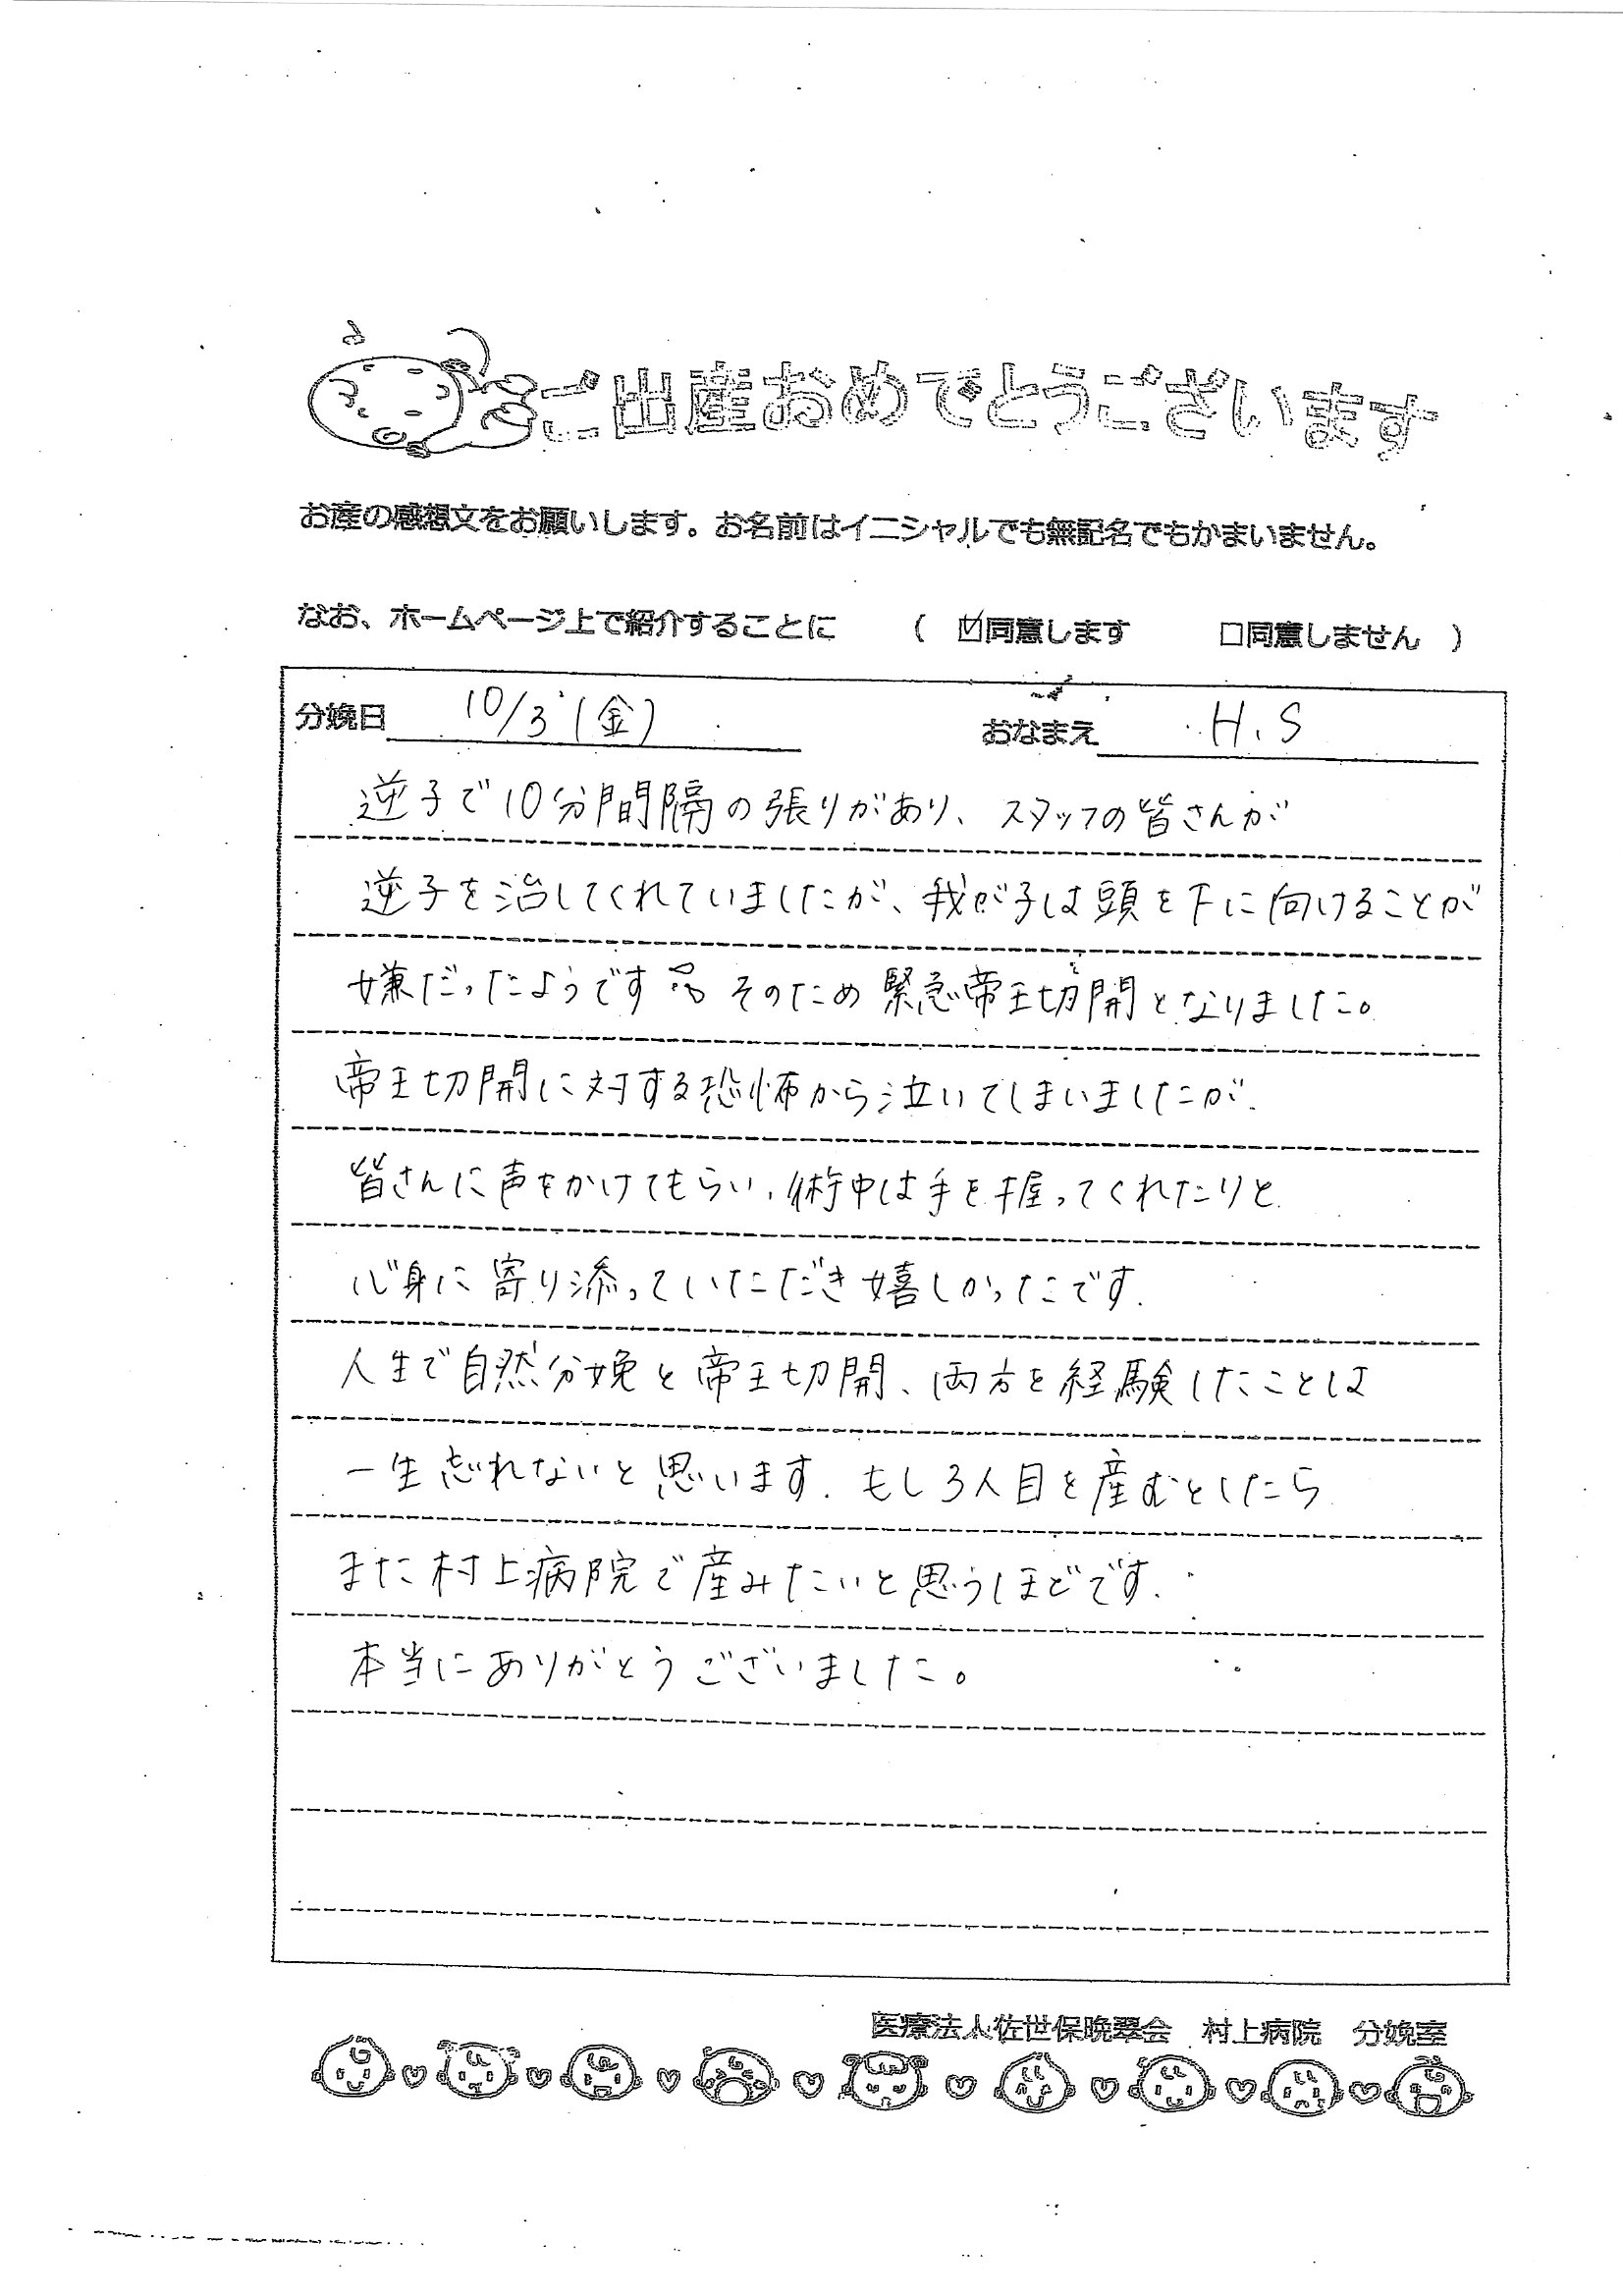 ご出産おめでとうございます
お産の感想文をお願いします。お名前はイニシャルでも無記名でもかまいません。
なお、ホームページ上で紹介することに （ ☑同意します □同意しません ）
分娩日 10/3（金） おなまえ H.S
逆子で10分間隔の張りがあり、スタッフの皆さんが
逆子を治してくれていましたが、我が子は頭を下に向けることが
嫌だったようです そのため緊急帝王切開となりました。
帝王切開に対する恐怖から泣いてしまいましたが、
皆さんに声をかけてもらい、術中は手を握ってくれたりと
心身に寄り添っていただき嬉しかったです.
人生で自然分娩と帝王切開、両方を経験したことは
一生忘れないと思います. もし3人目を産むとしたら
また村上病院で産みたいと思うほどです.
本当にありがとうございました。
医療法人佐世保晩翠会 村上病院 分娩室